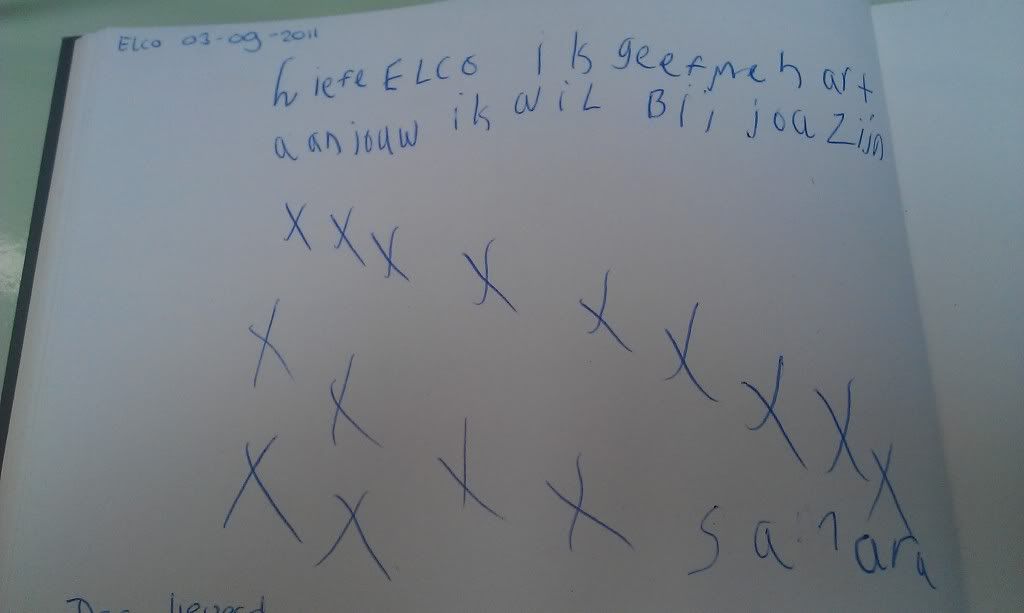 Elco 03-09-2011
liefe ELCO ik geef me hart
aan jouw ik wil Bij joa zijn
X X X X X X X X X
X X
X X X X